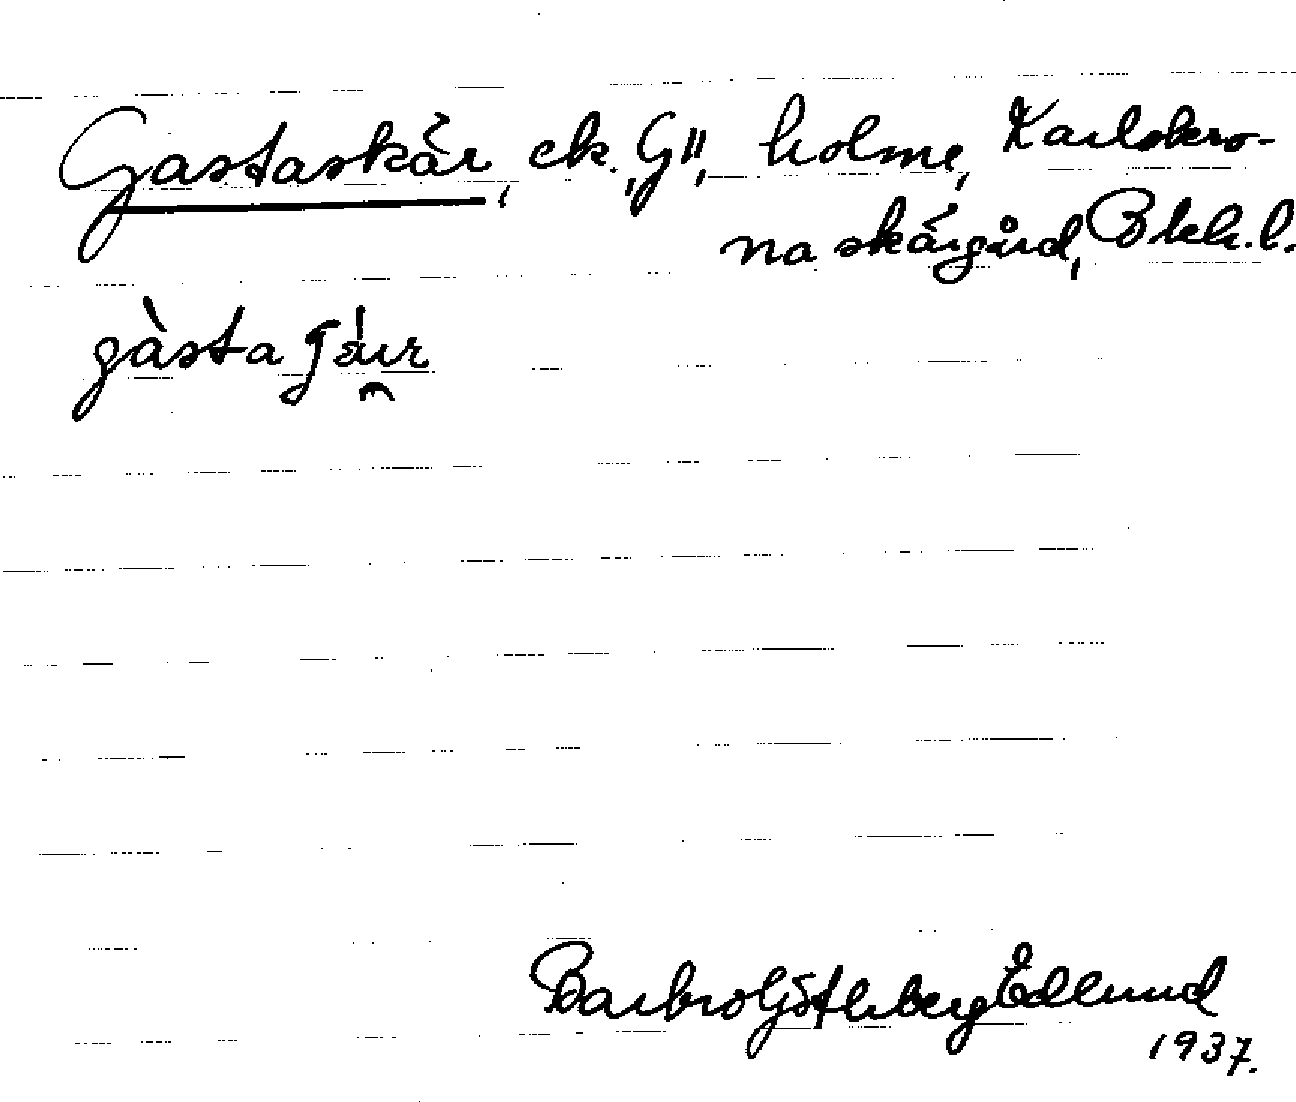 Gastaskär, ek. "G", holme, Karlskro-
na skärgård, Blek. l.
gàsta
Barbro Götlberg Edlund
1937.